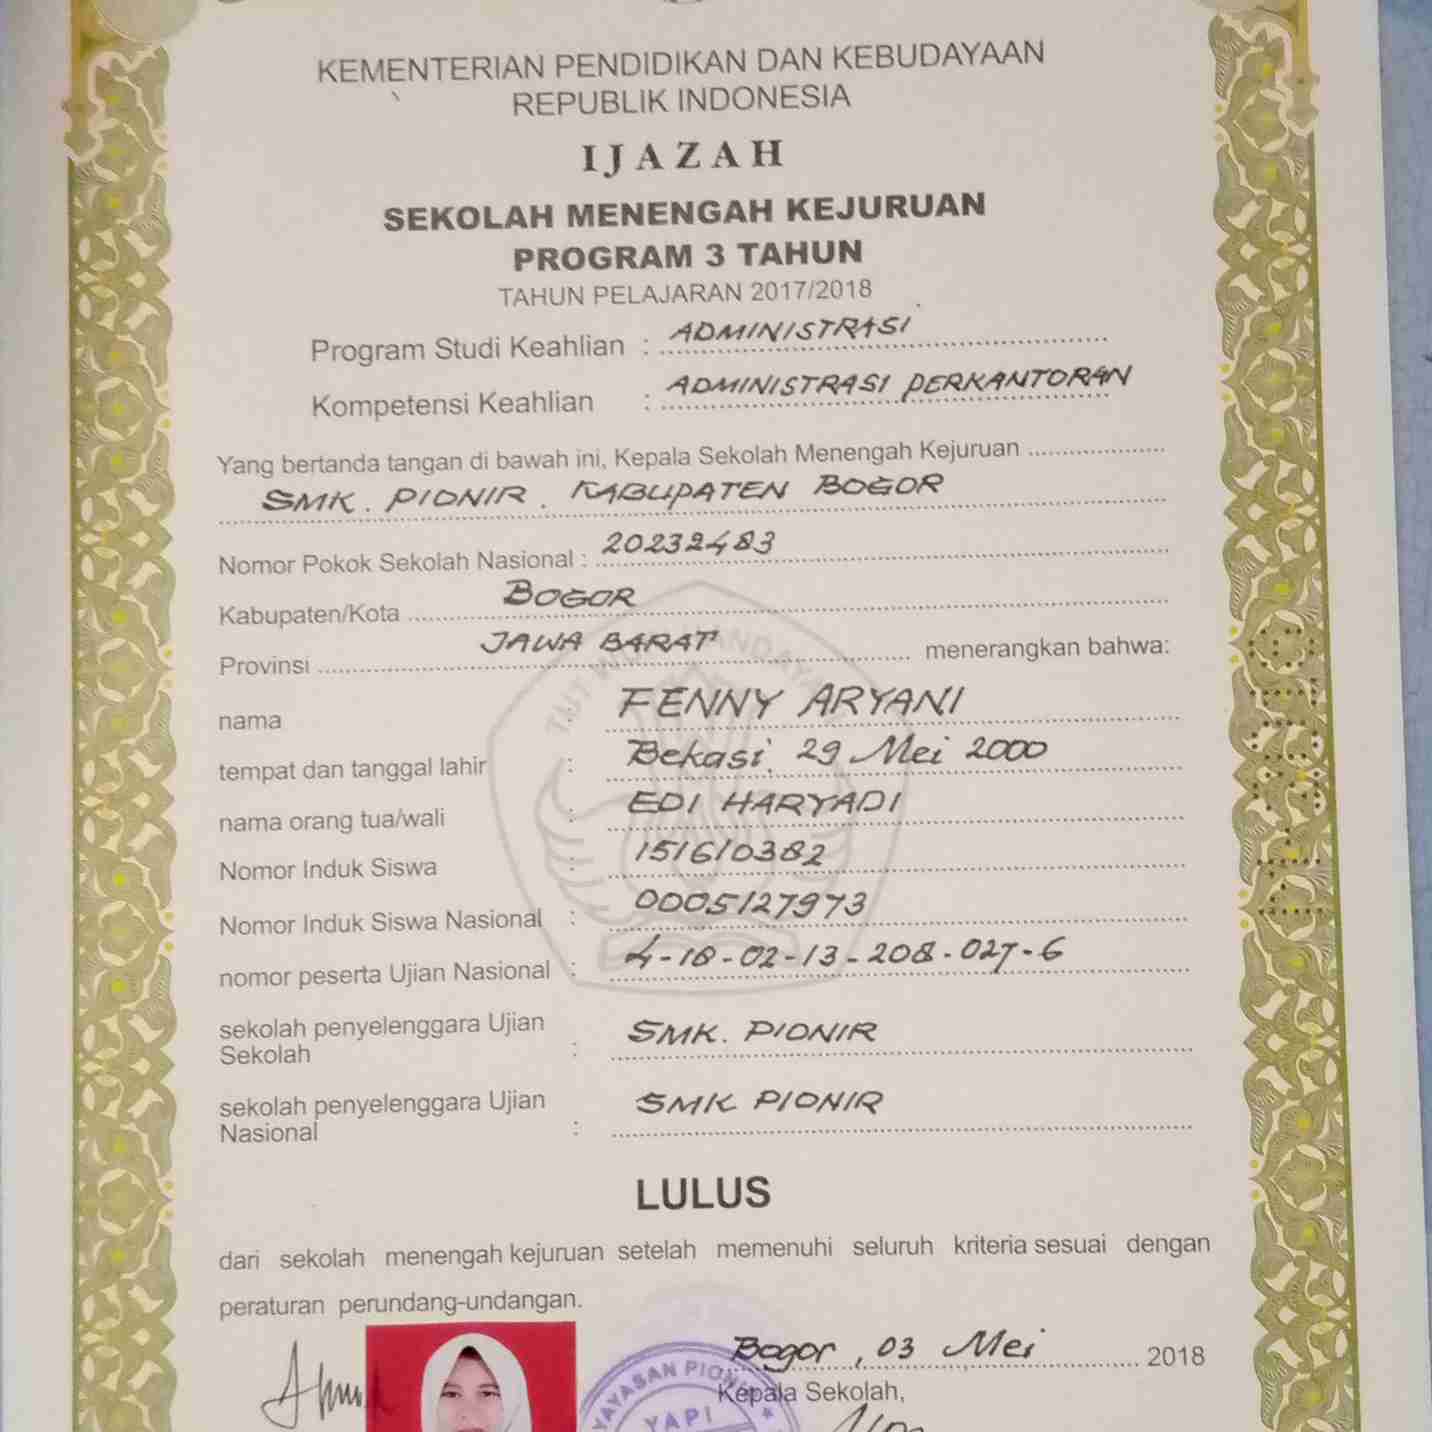 KEMENTERIAN PENDIDIKAN DAN KEBUDAYAAN
REPUBLIK INDONESIA
IJAZAH
SEKOLAH MENENGAH KEJURUAN
PROGRAM 3 TAHUN
TAHUN PELAJARAN 2017/2018
Program Studi Keahlian : ADMINISTRASI
Kompetensi Keahlian : ADMINISTRASI PERKANTORAN
Yang bertanda tangan di bawah ini, Kepala Sekolah Menengah Kejuruan
SMK. PIONIR. KABUPATEN BOGOR
Nomor Pokok Sekolah Nasional : 20232483
Kabupaten/Kota BOGOR
Provinsi JAWA BARAT menerangkan bahwa:
nama : FENNY ARYANI
tempat dan tanggal lahir : Bekasi, 29 Mei 2000
nama orang tua/wali : EDI HARYADI
Nomor Induk Siswa : 151610382
Nomor Induk Siswa Nasional : 0005127973
nomor peserta Ujian Nasional : 4-18-02-13-208-027-6
sekolah penyelenggara Ujian
Sekolah : SMK. PIONIR
sekolah penyelenggara Ujian
Nasional : SMK PIONIR
LULUS
dari sekolah menengah kejuruan setelah memenuhi seluruh kriteria sesuai dengan
peraturan perundang-undangan.
Bogor, 03 Mei 2018
Kepala Sekolah,
YAYASAN PIONIR
YAPI